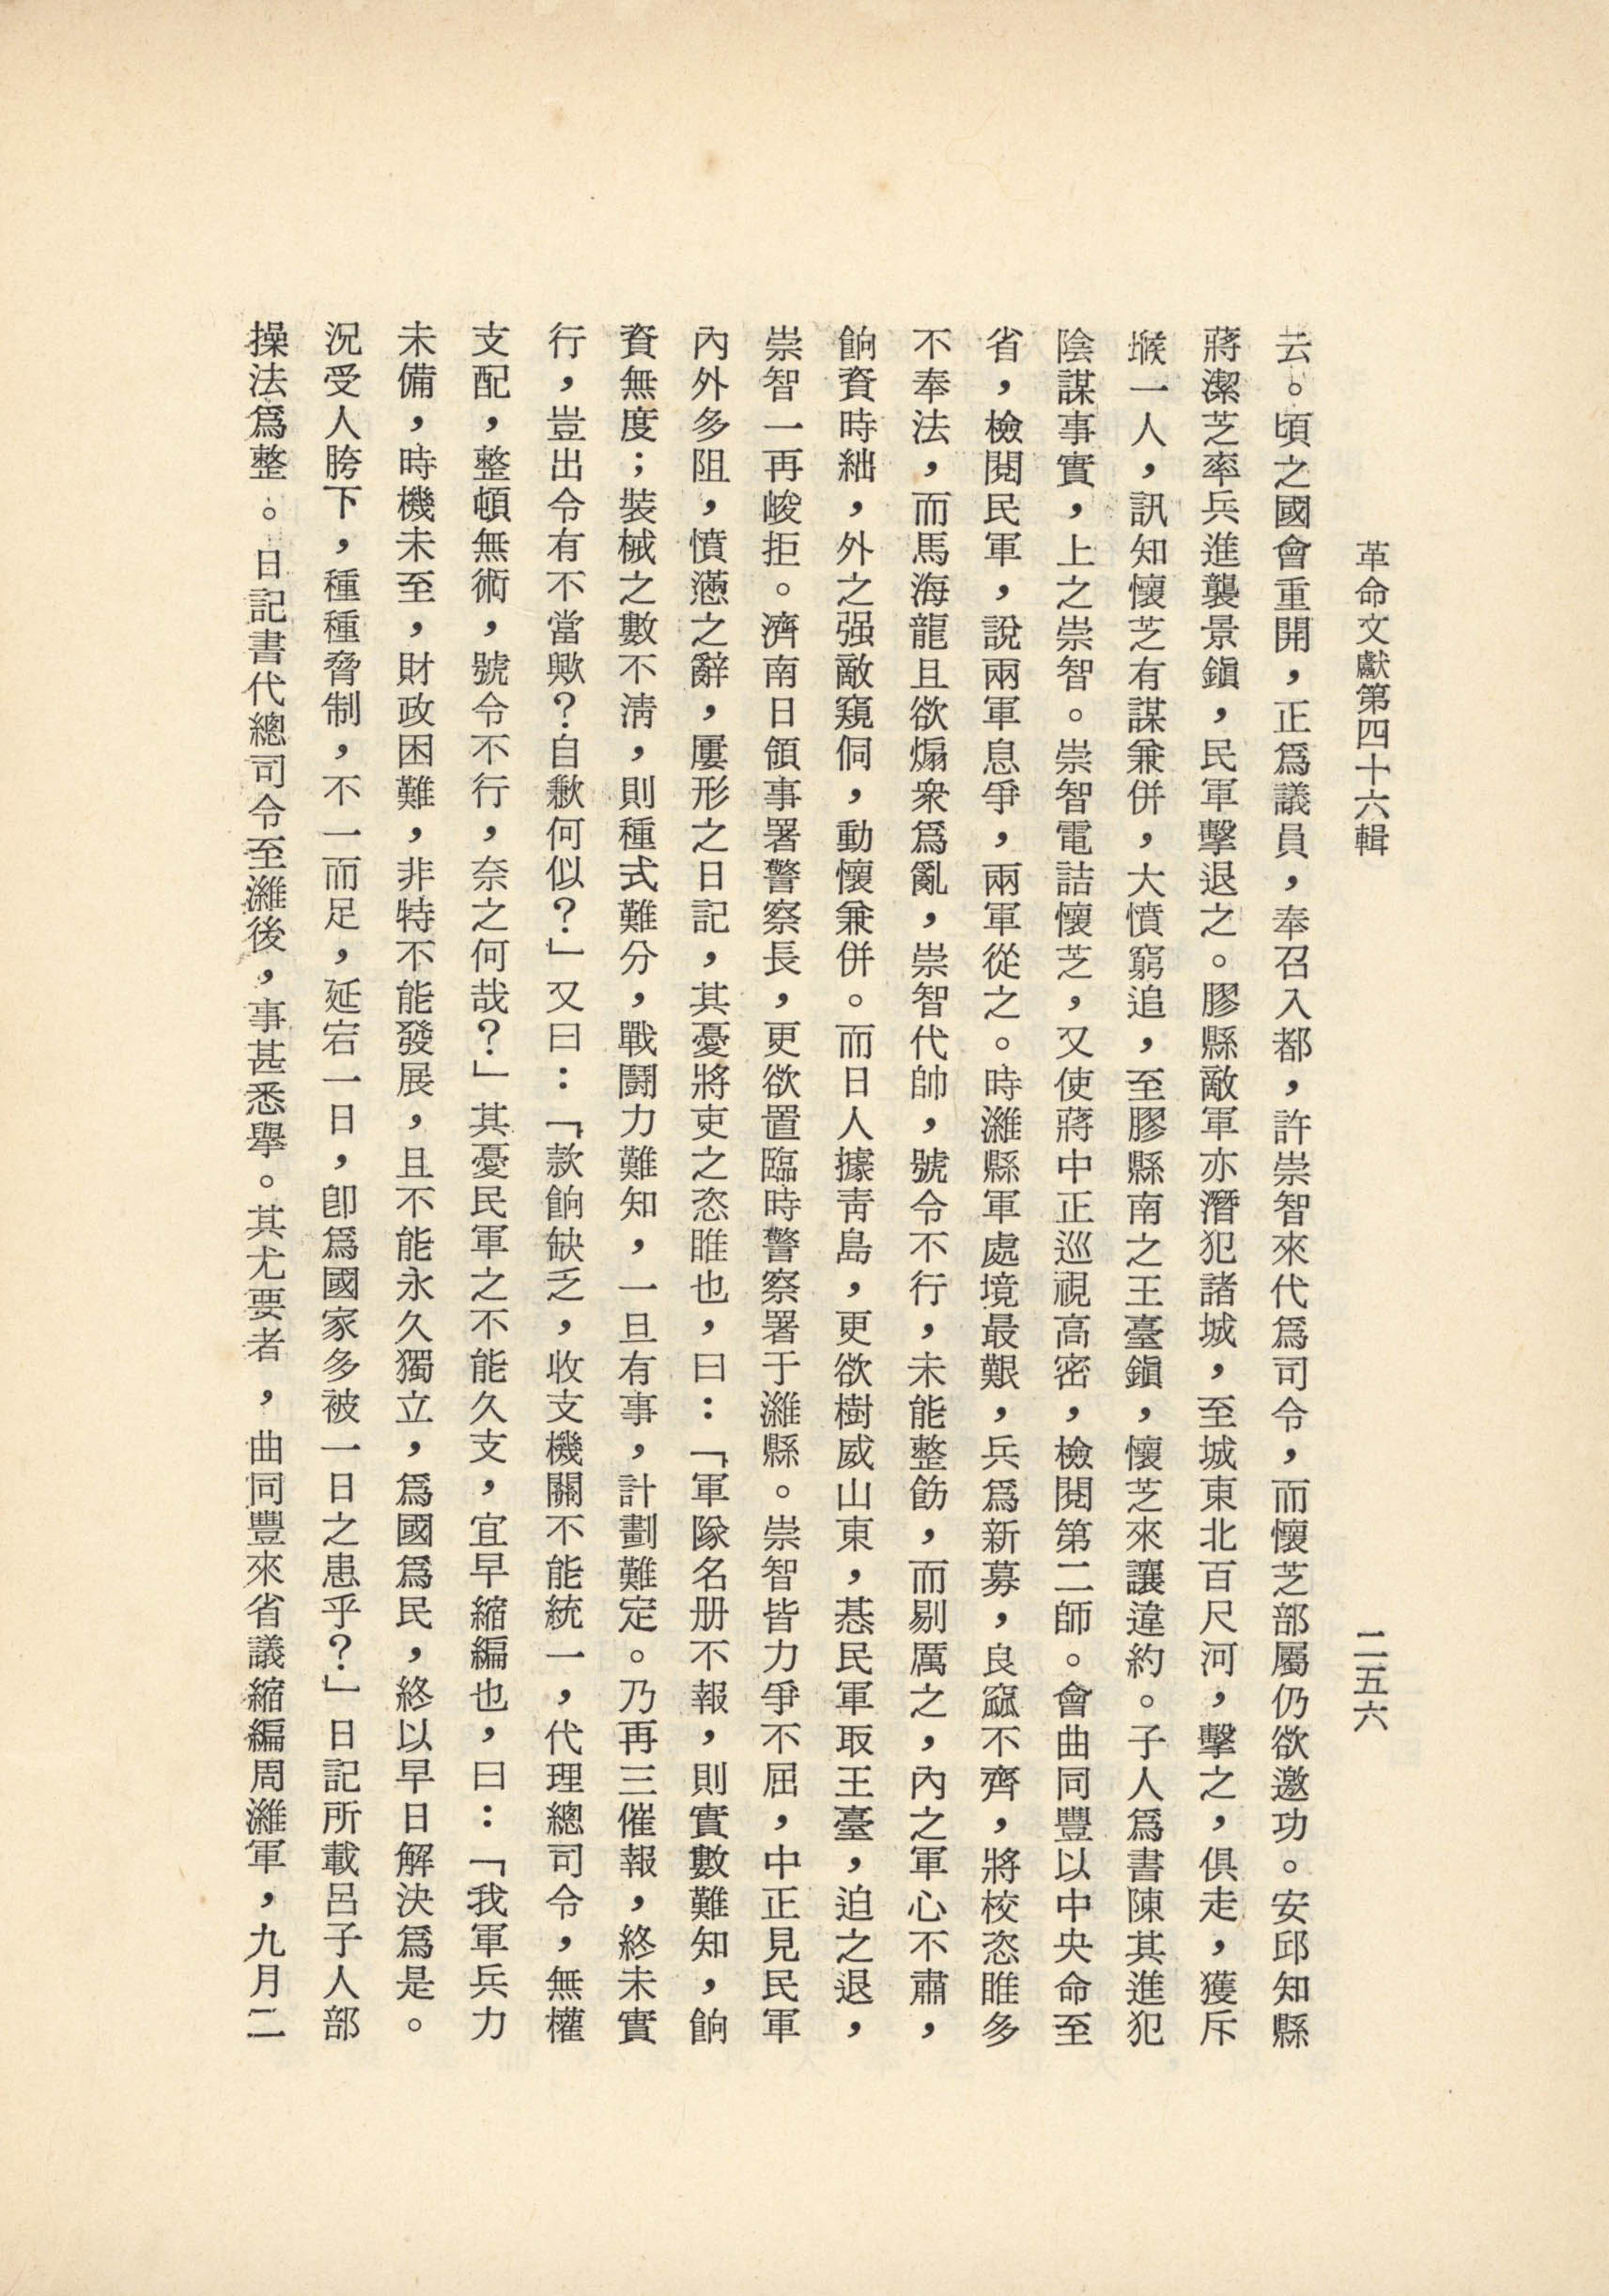 革命文獻第四十六輯
二五六
去。頃之國會重開，正爲議員，奉召入都，許崇智來代爲司令，而懷芝部屬仍欲邀功。安邱知縣
蔣潔芝率兵進襲景鎭，民軍擊退之。膠縣敵軍亦潛犯諸城，至城東北百尺河，擊之，俱走，獲斥
堠一人，訊知懷芝有謀兼併，大憤窮追，至膠縣南之王臺鎭，懷芝來讓違約。子人爲書陳其進犯
陰謀事實，上之崇智。崇智電詰懷芝，又使蔣中正巡視高密，檢閱第二師。會曲同豐以中央命至
省，檢閱民軍，說兩軍息爭，兩軍從之。時濰縣軍處境最艱，兵爲新募，良窳不齊，將校恣睢多
不奉法，而馬海龍且欲煽衆爲亂，崇智代帥，號令不行，未能整飭，而剔厲之，內之軍心不肅，
餉資時絀，外之强敵窺伺，動懷兼併。而日人據靑島，更欲樹威山東，惎民軍取王臺，迫之退，
崇智一再峻拒。濟南日領事署警察長，更欲置臨時警察署于濰縣。崇智皆力爭不屈，中正見民軍
內外多阻，憤懣之辭，屢形之日記，其憂將吏之恣睢也，曰：「軍隊名册不報，則實數難知，餉
資無度；裝械之數不淸，則種式難分，戰鬭力難知，一旦有事，計劃難定。乃再三催報，終未實
行，豈出令有不當歟？自歉何似？」又曰：「款餉缺乏，收支機關不能統一，代理總司令，無權
支配，整頓無術，號令不行，奈之何哉？」其憂民軍之不能久支，宜早縮編也，曰：「我軍兵力
未備，時機未至，財政困難，非特不能發展，且不能永久獨立，爲國爲民，終以早日解決爲是。
況受人胯下，種種脅制，不一而足，延宕一日，卽爲國家多被一日之患乎？」日記所載呂子人部
操法爲整。日記書代總司令至濰後，事甚悉舉。其尤要者，曲同豐來省議縮編周濰軍，九月二